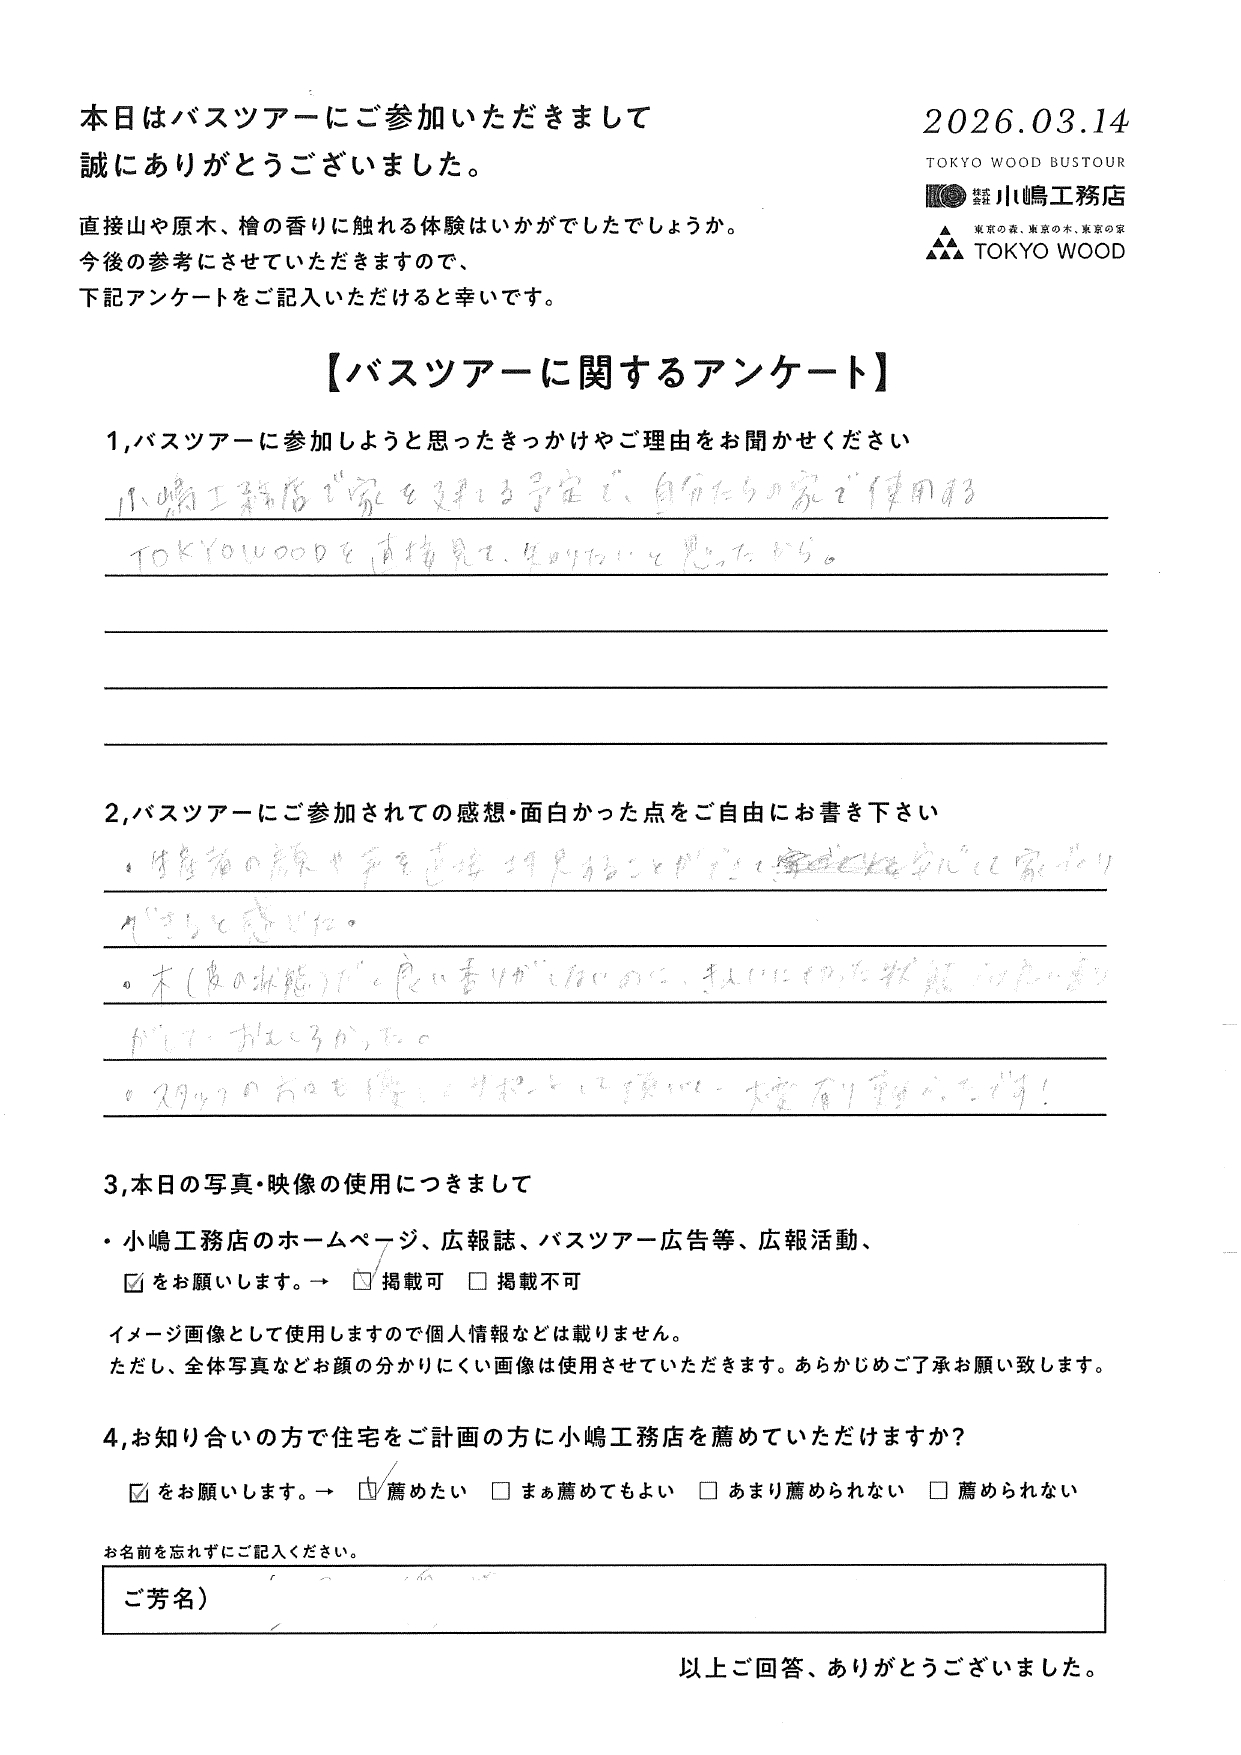 本日はバスツアーにご参加いただきまして
誠にありがとうございました。
2026.03.14
TOKYO WOOD BUSTOUR
株式会社 小嶋工務店
東京の森、東京の木、東京の家
TOKYO WOOD
直接山や原木、檜の香りに触れる体験はいかがでしたでしょうか。
今後の参考にさせていただきますので、
下記アンケートをご記入いただけると幸いです。
【バスツアーに関するアンケート】
1,バスツアーに参加しようと思ったきっかけやご理由をお聞かせください
小嶋工務店で家を建てる予定で、自分たちの家で使用する
TOKYOWOODを直接見て、知りたいと思ったから。
2,バスツアーにご参加されての感想・面白かった点をご自由にお書き下さい
・生産者の顔や声を直接拝見することができて安心して家づくり
ができると感じた。
・木(皮の状態)だと良い香りがしないのに、きれいに切った状態 良い香り
がして、おもしろかった。
・スタッフの方々も優しくサポートして頂いて、大変有り難かったです!
3,本日の写真・映像の使用につきまして
・小嶋工務店のホームページ、広報誌、バスツアー広告等、広報活動、
☑をお願いします。→ ☑掲載可 □掲載不可
イメージ画像として使用しますので個人情報などは載りません。
ただし、全体写真などお顔の分かりにくい画像は使用させていただきます。あらかじめご了承お願い致します。
4,お知り合いの方で住宅をご計画の方に小嶋工務店を薦めていただけますか?
☑をお願いします。→ ☑薦めたい □まぁ薦めてもよい □あまり薦められない □薦められない
お名前を忘れずにご記入ください。
ご芳名)
以上ご回答、ありがとうございました。